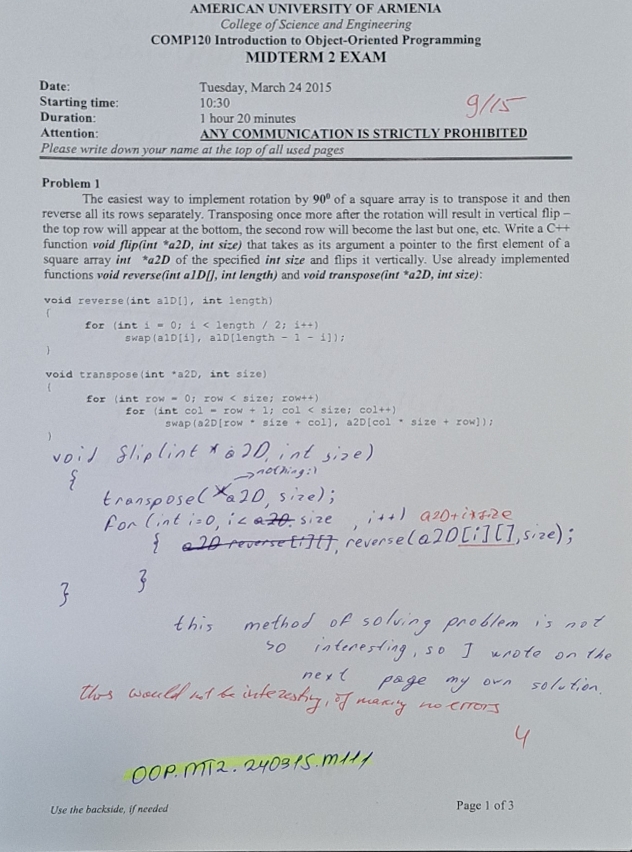 AMERICAN UNIVERSITY OF ARMENIA
College of Science and Engineering
COMP120 Introduction to Object-Oriented Programming
MIDTERM 2 EXAM
Date: Tuesday, March 24 2015
Starting time: 10:30
9/15
Duration: 1 hour 20 minutes
Attention: ANY COMMUNICATION IS STRICTLY PROHIBITED
Please write down your name at the top of all used pages
Problem 1
The easiest way to implement rotation by 90⁰ of a square array is to transpose it and then
reverse all its rows separately. Transposing once more after the rotation will result in vertical flip –
the top row will appear at the bottom, the second row will become the last but one, etc. Write a C++
function void flip(int *a2D, int size) that takes as its argument a pointer to the first element of a
square array int *a2D of the specified int size and flips it vertically. Use already implemented
functions void reverse(int a1D[], int length) and void transpose(int *a2D, int size):
void reverse(int a1D[], int length)
{
for (int i = 0; i < length / 2; i++)
swap(a1D[i], a1D[length - 1 - i]);
}
void transpose(int *a2D, int size)
{
for (int row = 0; row < size; row++)
for (int col = row + 1; col < size; col++)
swap(a2D[row * size + col], a2D[col * size + row]);
}
void flip(int * a2D, int size)
{ → nothing:)
transpose(*a2D, size);
for (int i=0, i< a2D. size , i++) a2D+i*size
{ a2D reverse[i][], reverse(a2D[i][], size);
} }
this method of solving problem is not
so interesting, so I wrote on the
next page my own solution.
this would not be interesting, if making no errors
4
OOP.MT2.240315.M111
Use the backside, if needed Page 1 of 3